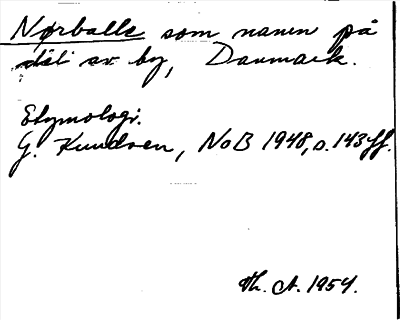 Nørballe som namn på
del av by, Danmark.
Etymologi.
G. Knudsen, NoB 1948, s. 143 ff.
Th. A. 1954.